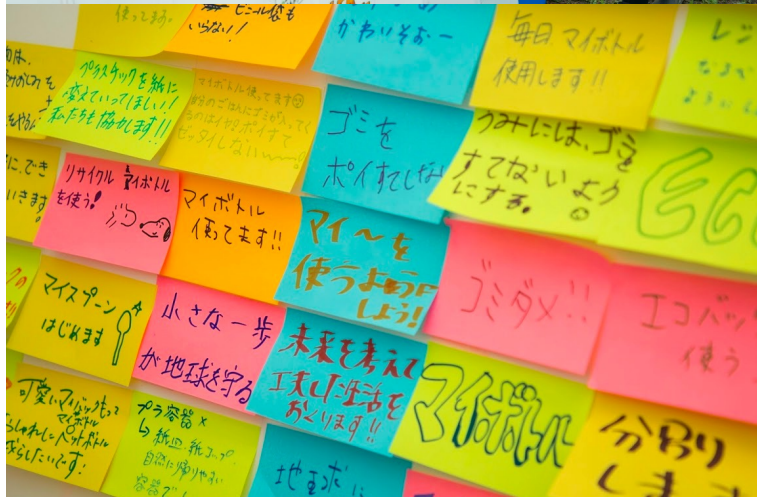 使ってます。
ビニール袋も
いらない!
かわいそおー
毎日マイボトル
使用します!!
プラスチックを紙に
変えていってほしい!
私たちも協力します!!
マイボトル使ってます
ゴミを
ポイすてしな
うみには、ゴミを
すてないよう
にする。
ECO
にでき
いきます
リサイクル マイボトル
を使う!
マイボトル
使ってます!!
マイ〜を
使うよう
しよう!
ゴミダメ!!
エコバッ
使う
マイスプーン
はじめます
小さな一歩
が地球を守る
未来を考えて
工夫した生活を
おくります!!
マイボトル
分別
しま
可愛いマイバックもって
マイボトル
おしゃれにペットボトル
減らしたいです!
プラ容器×
紙皿 紙コップ
自然に帰りやすい
容器で!
地球に